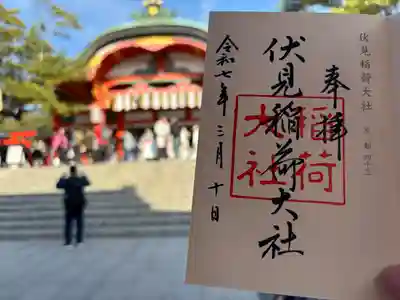 伏見稲荷大社
奉拝
伏見稲荷大社
稲荷
大社
令和七年三月十日